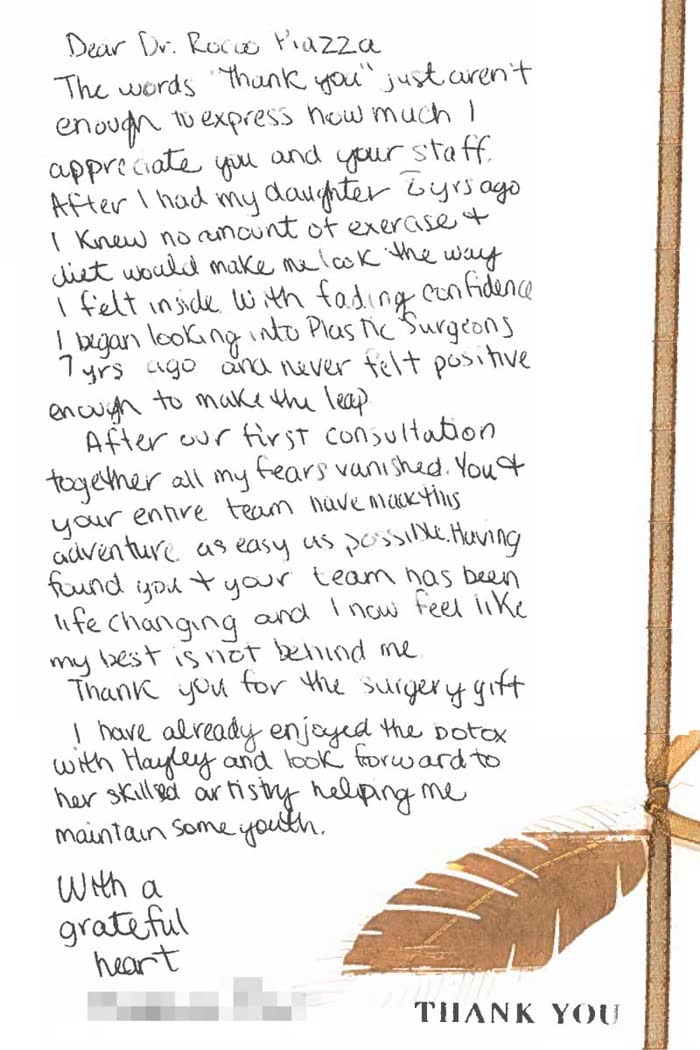 Dear Dr. Rocco Piazza
The words "thank you" just aren't
enough to express how much I
appreciate you and your staff.
After I had my daughter yrs ago
I knew no amount of exercise +
diet would make me look the way
I felt inside. With fading confidence
I began looking into Plastic Surgeons
7 yrs ago and never felt positive
enough to make the leap.
After our first consultation
together all my fears vanished. You +
your entire team have made this
adventure as easy as possible. Having
found you + your team has been
life changing and I now feel like
my best is not behind me.
Thank you for the surgery gift
I have already enjoyed the botox
with Hayley and look forward to
her skilled artistry helping me
maintain some youth.
With a
grateful
heart
THANK YOU